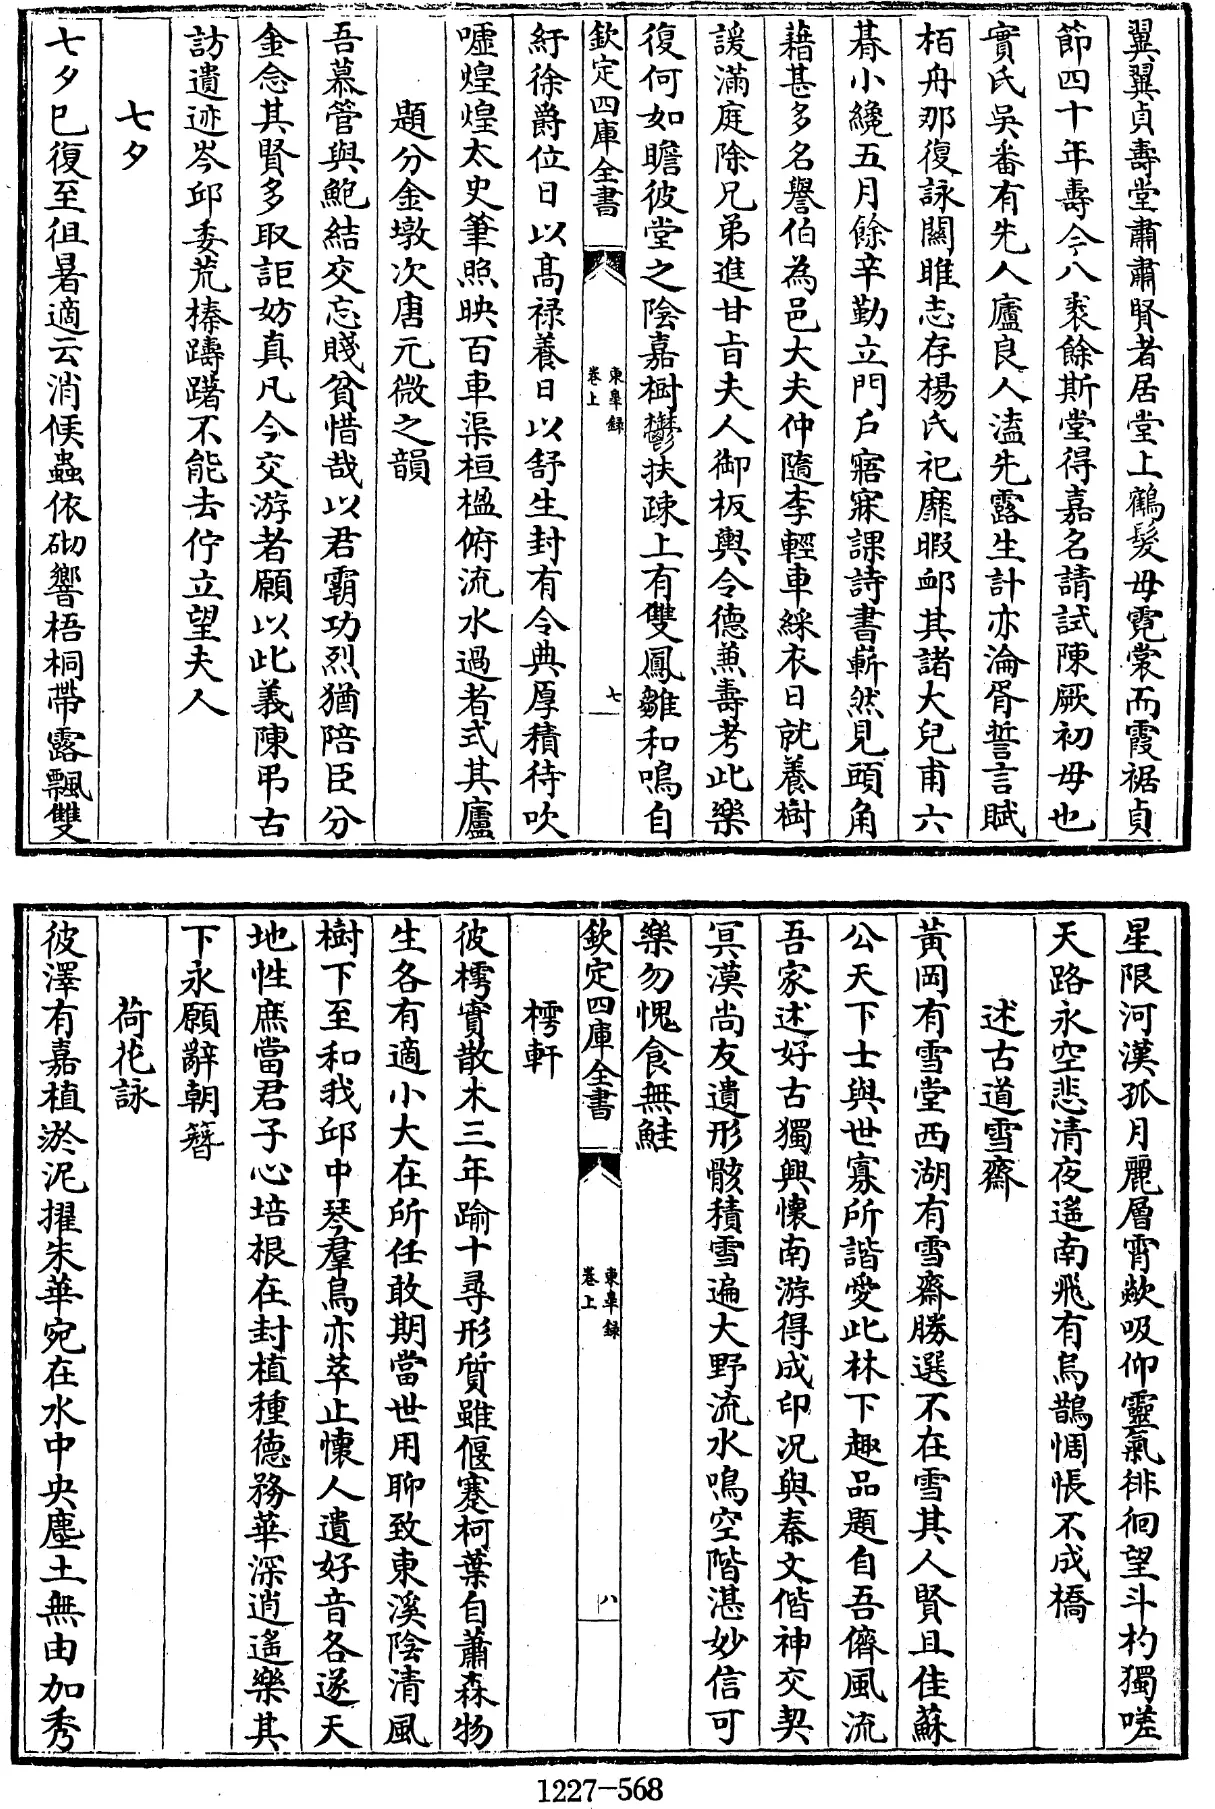 翼翼貞壽堂肅肅賢者居堂上鶴髮母霓裳而霞裾貞
節四十年壽今八袠餘斯堂得嘉名請試陳厥初母也
實氏吳番有先人廬良人溘先露生計亦淪胥誓言賦
栢舟那復詠關雎志存楊氏祀靡暇卹其諸大兒甫六
朞小纔五月餘辛勤立門戶寤寐課詩書嶄然見頭角
藉甚多名譽伯為邑大夫仲隨李輕車綵衣日就養樹
諼滿庭除兄弟進甘旨夫人御板輿令德兼壽考此樂
復何如瞻彼堂之陰嘉樹鬱扶疎上有雙鳳雛和鳴自
欽定四庫全書
東臯録
卷上
七
紆徐爵位日以高禄養日以舒生封有令典厚積待吹
噓煌煌太史筆照映百車渠桓楹俯流水過者式其廬
題分金墩次唐元微之韻
吾慕管與鮑結交忘賤貧惜哉以君霸功烈猶陪臣分
金念其賢多取詎妨真凡今交游者願以此義陳弔古
訪遺迹岑邱委荒榛躊躇不能去佇立望夫人
七夕
七夕巳復至徂暑適云消候蟲依砌響梧桐帶露飄雙
星限河漢孤月麗層霄歘吸仰靈氣徘徊望斗杓獨嗟
天路永空悲清夜遙南飛有烏鵲惆悵不成橋
述古道雪齋
黃岡有雪堂西湖有雪齋勝選不在雪其人賢且佳蘇
公天下士與世寡所諧愛此林下趣品題自吾儕風流
吾家述好古獨興懷南游得成印况與秦文偕神交契
冥漠尚友遺形骸積雪遍大野流水鳴空階湛妙信可
樂勿愧食無鮭
欽定四庫全書
東臯録
卷上
八
樗軒
彼樗實散木三年踰十尋形質雖偃蹇柯葉自蕭森物
生各有適小大在所任敢期當世用聊致東溪陰清風
樹下至和我邱中琴羣鳥亦萃止懷人遺好音各遂天
地性庶當君子心培根在封植種德務華深逍遙樂其
下永願辭朝簪
荷花詠
彼澤有嘉植淤泥擢朱華宛在水中央塵土無由加秀
1227-568